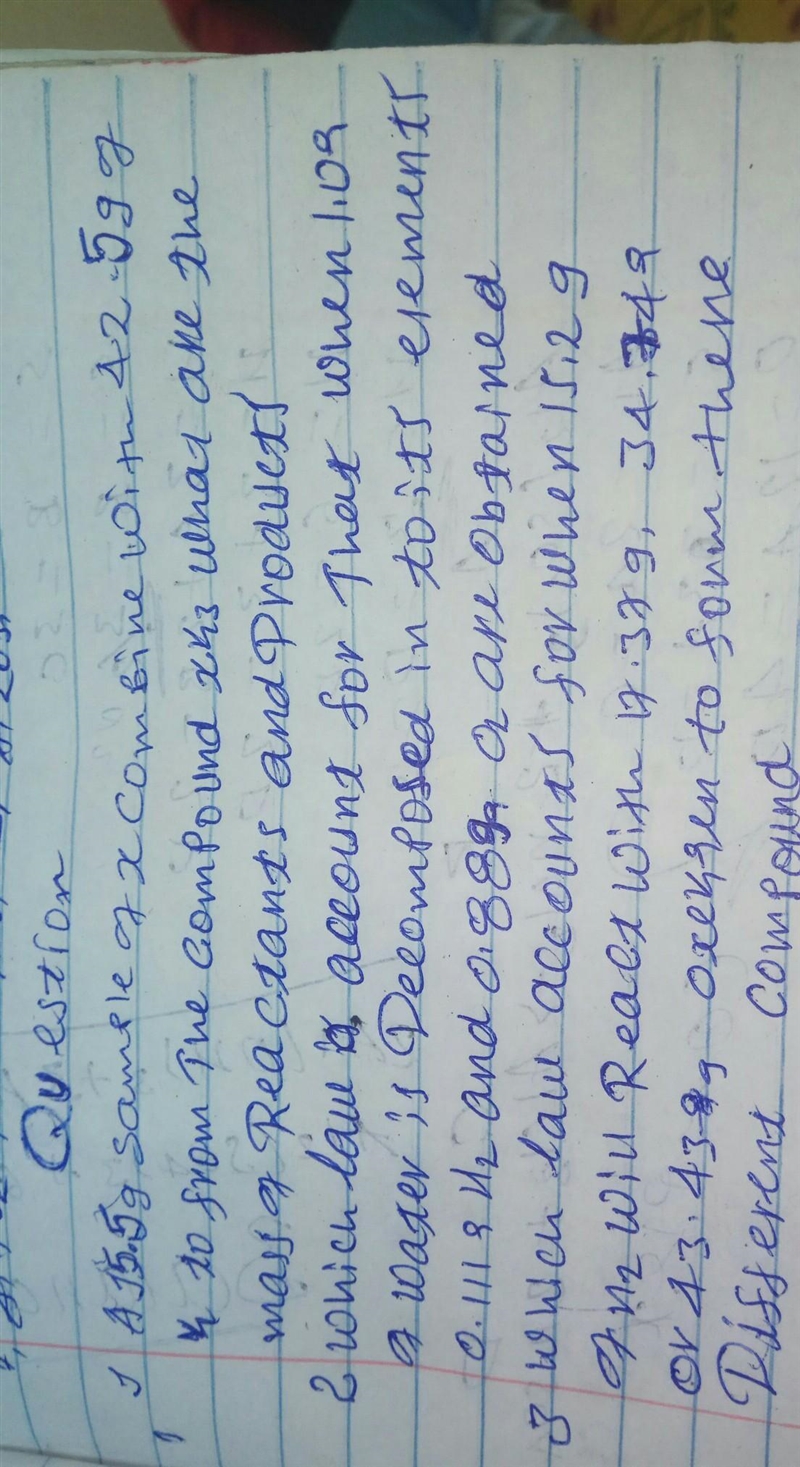 Question
1 A 15.5g sample of x combine with 42.5g of
y to from The compound xy3 what are the
mass of Reactants and Products
2 which law account for That when 1.0g
of water is Decomposed in to its elements
0.111g H2 and 0.889g O2 are obtained
3 which law accounts for when 15.2g
of N2 will React with 17.37g, 34.74g
or 43.43g oxeygen to form there
Different compound